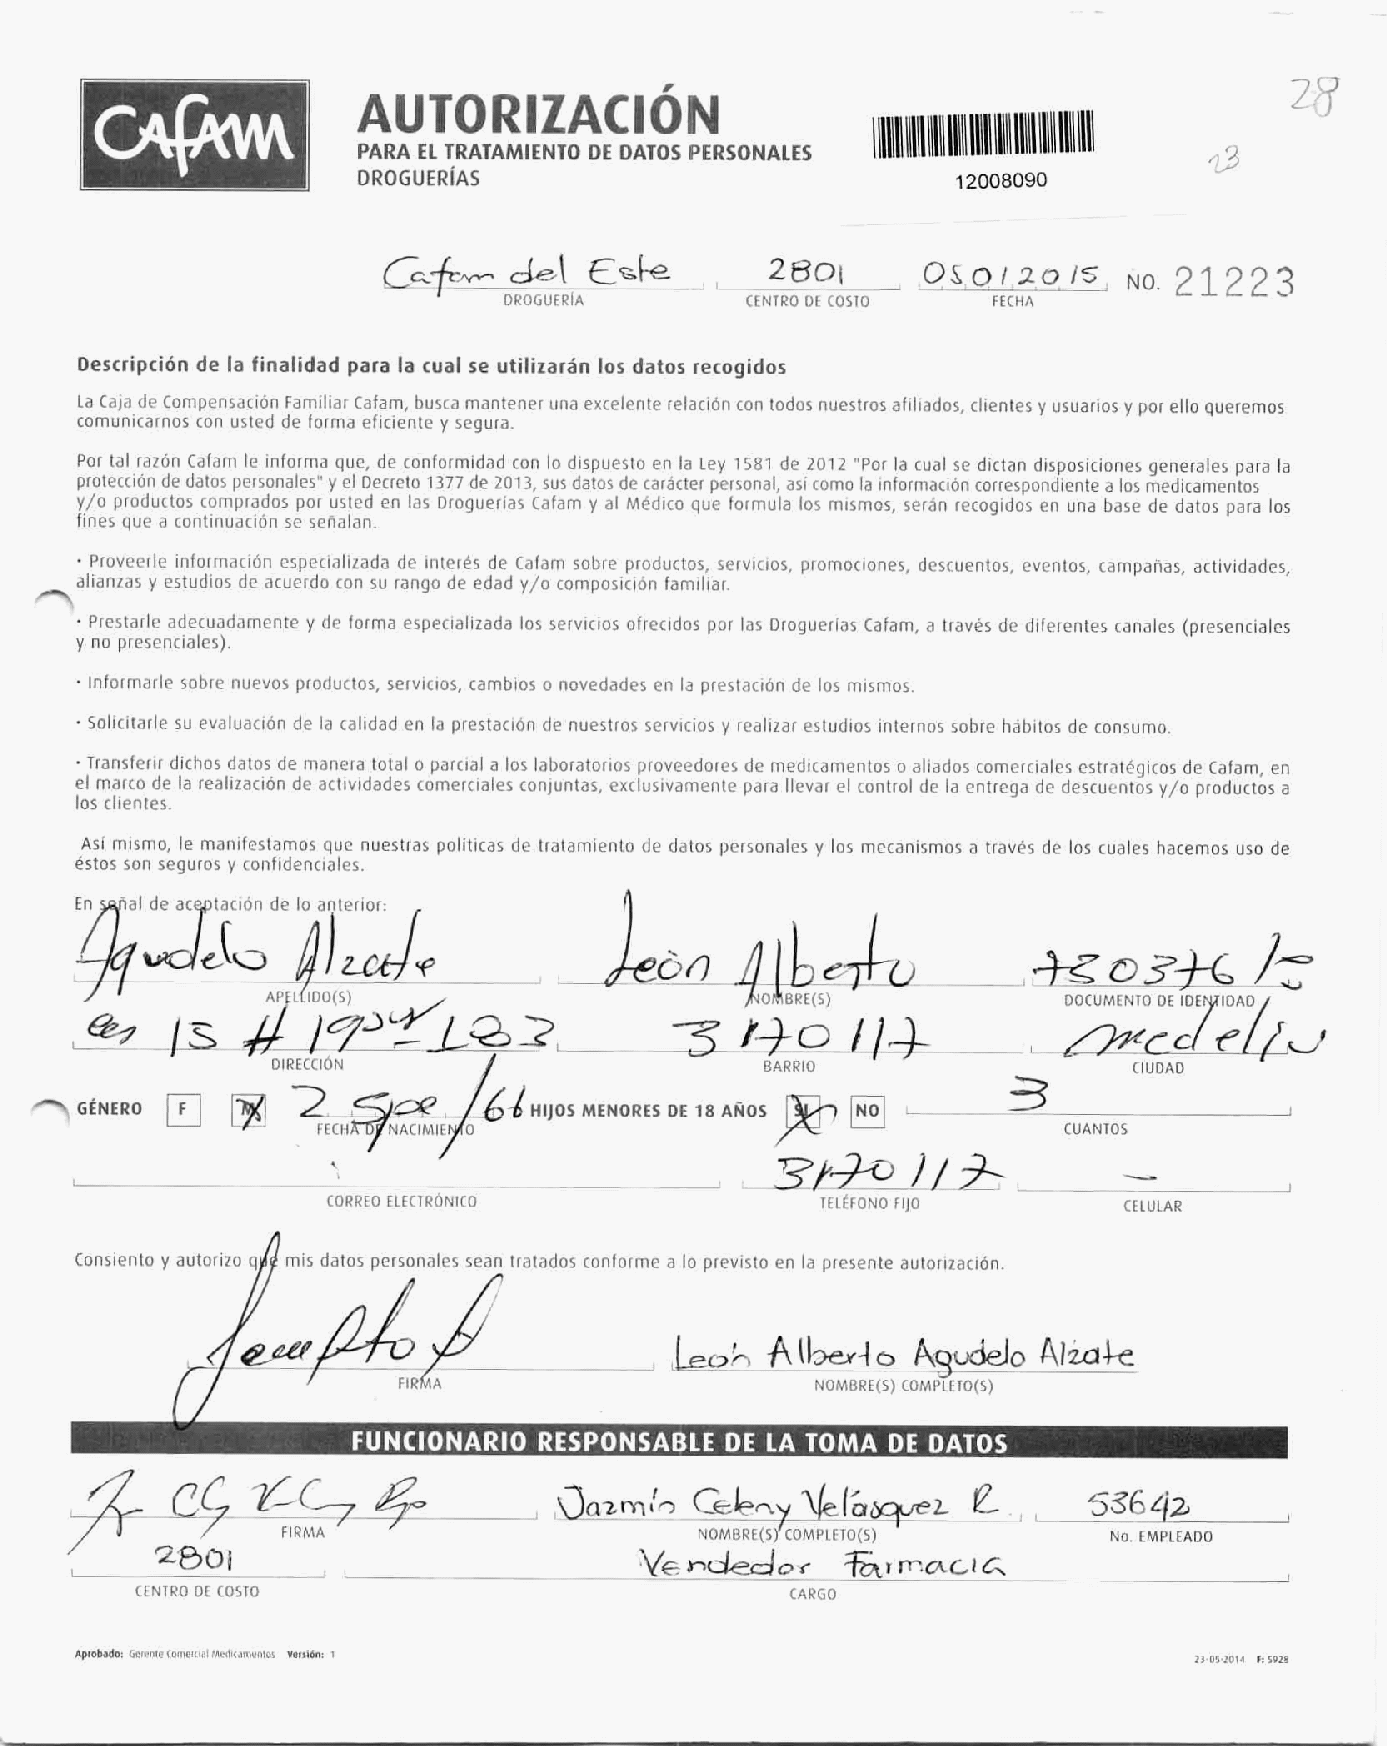 28
Cafam
AUTORIZACIÓN
PARA EL TRATAMIENTO DE DATOS PERSONALES
DROGUERÍAS
12008090
23
Cafam del Este 2801 05012015 NO. 21223
DROGUERÍA CENTRO DE COSTO FECHA
Descripción de la finalidad para la cual se utilizarán los datos recogidos
La Caja de Compensación Familiar Cafam, busca mantener una excelente relación con todos nuestros afiliados, clientes y usuarios y por ello queremos
comunicarnos con usted de forma eficiente y segura.
Por tal razón Cafam le informa que, de conformidad con lo dispuesto en la Ley 1581 de 2012 "Por la cual se dictan disposiciones generales para la
protección de datos personales" y el Decreto 1377 de 2013, sus datos de carácter personal, así como la información correspondiente a los medicamentos
y/o productos comprados por usted en las Droguerías Cafam y al Médico que formula los mismos, serán recogidos en una base de datos para los
fines que a continuación se señalan.
· Proveerle información especializada de interés de Cafam sobre productos, servicios, promociones, descuentos, eventos, campañas, actividades,
alianzas y estudios de acuerdo con su rango de edad y/o composición familiar.
· Prestarle adecuadamente y de forma especializada los servicios ofrecidos por las Droguerías Cafam, a través de diferentes canales (presenciales
y no presenciales).
· Informarle sobre nuevos productos, servicios, cambios o novedades en la prestación de los mismos.
· Solicitarle su evaluación de la calidad en la prestación de nuestros servicios y realizar estudios internos sobre hábitos de consumo.
· Transferir dichos datos de manera total o parcial a los laboratorios proveedores de medicamentos o aliados comerciales estratégicos de Cafam, en
el marco de la realización de actividades comerciales conjuntas, exclusivamente para llevar el control de la entrega de descuentos y/o productos a
los clientes.
Así mismo, le manifestamos que nuestras políticas de tratamiento de datos personales y los mecanismos a través de los cuales hacemos uso de
éstos son seguros y confidenciales.
En señal de aceptación de lo anterior:
Agudelo Alzate León Alberto
APELLIDO(S) NOMBRE(S) DOCUMENTO DE IDENTIDAD
15 # 3170117
DIRECCIÓN BARRIO CIUDAD
GÉNERO F M 2 /66 HIJOS MENORES DE 18 AÑOS SI NO 3
FECHA DE NACIMIENTO CUANTOS
3170117 -
CORREO ELECTRÓNICO TELÉFONO FIJO CELULAR
Consiento y autorizo que mis datos personales sean tratados conforme a lo previsto en la presente autorización.
León Alberto Agudelo Alzate
FIRMA NOMBRE(S) COMPLETO(S)
FUNCIONARIO RESPONSABLE DE LA TOMA DE DATOS
Jazmín Celeny Velásquez R. 53642
FIRMA NOMBRE(S) COMPLETO(S) No. EMPLEADO
2801 Vendedor Farmacia
CENTRO DE COSTO CARGO
Aprobado: Gerente Comercial Medicamentos Versión: 1
23-05-2014 F: 5928